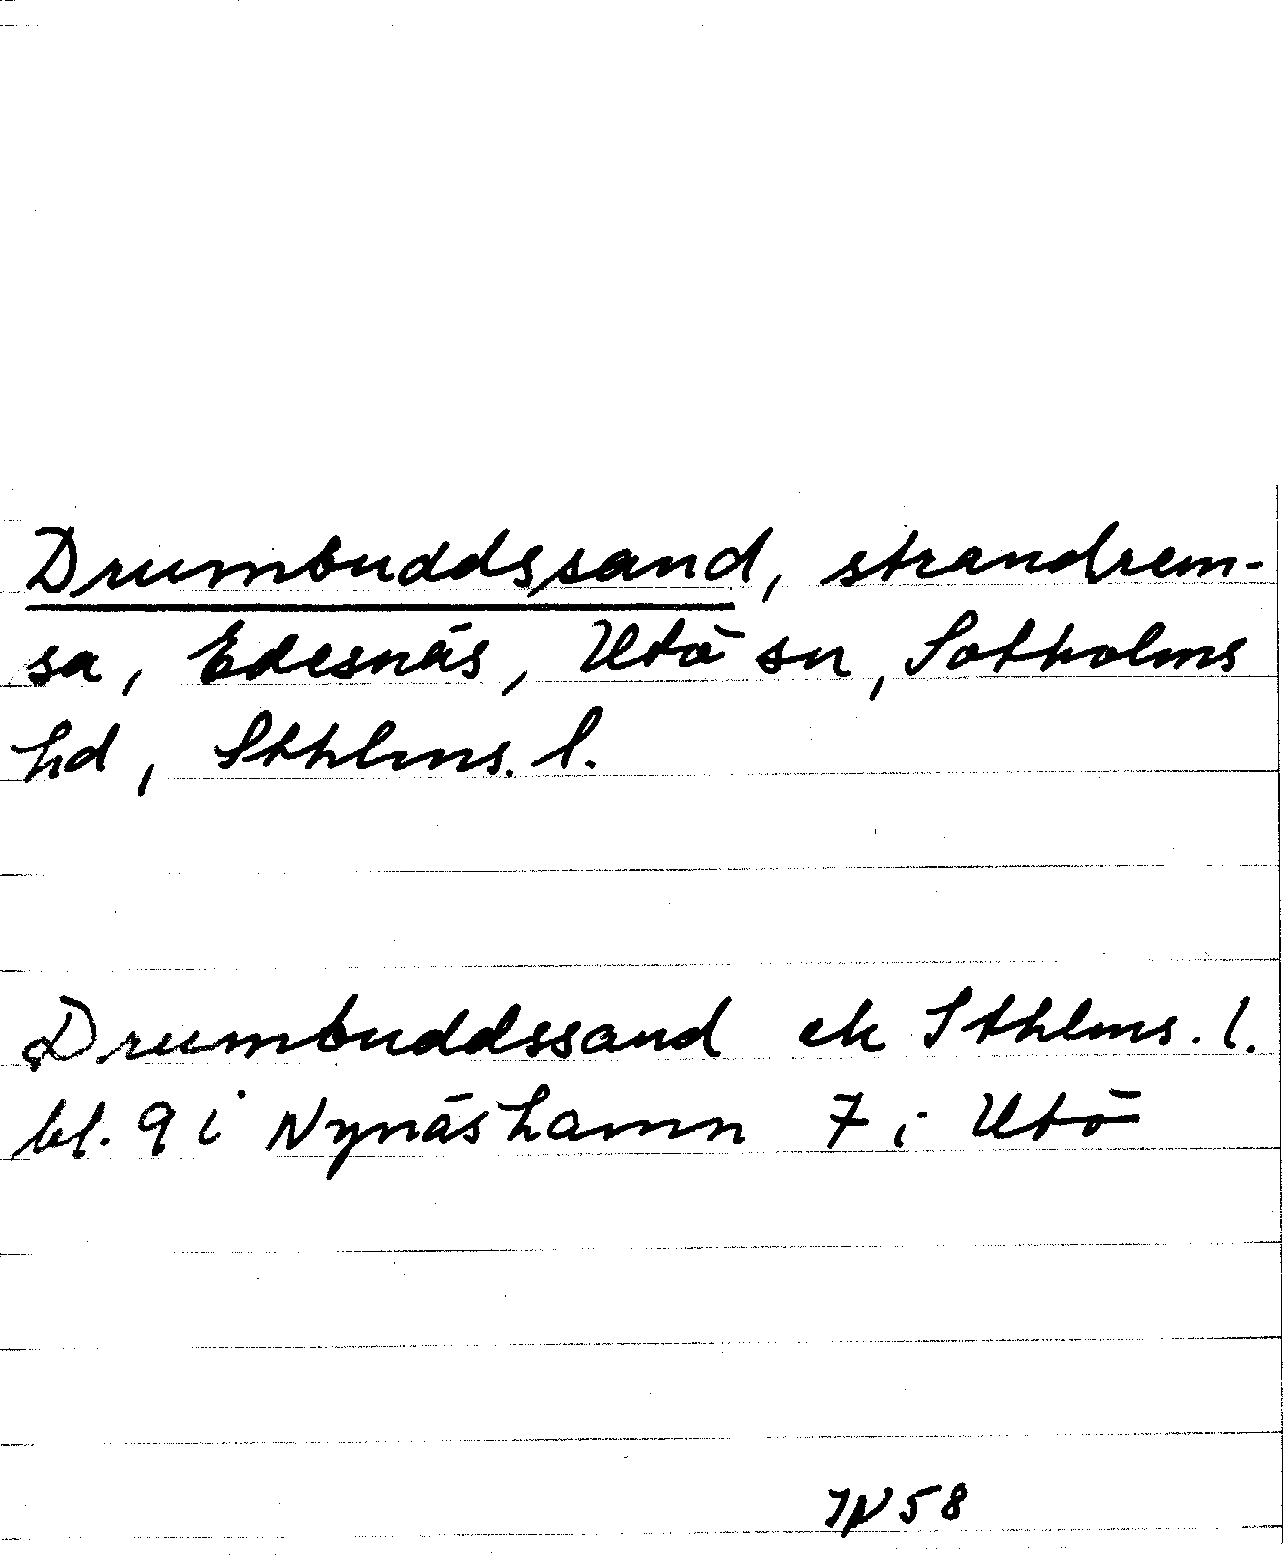 Drumbuddssand, strandrem-
sa, Edesnäs, Utö sn, Sotholms
hd, Sthlms. l.
Drumbuddssand ek Sthlms. l.
bl. 9 i Nynäshamn 7 i Utö
IN 58